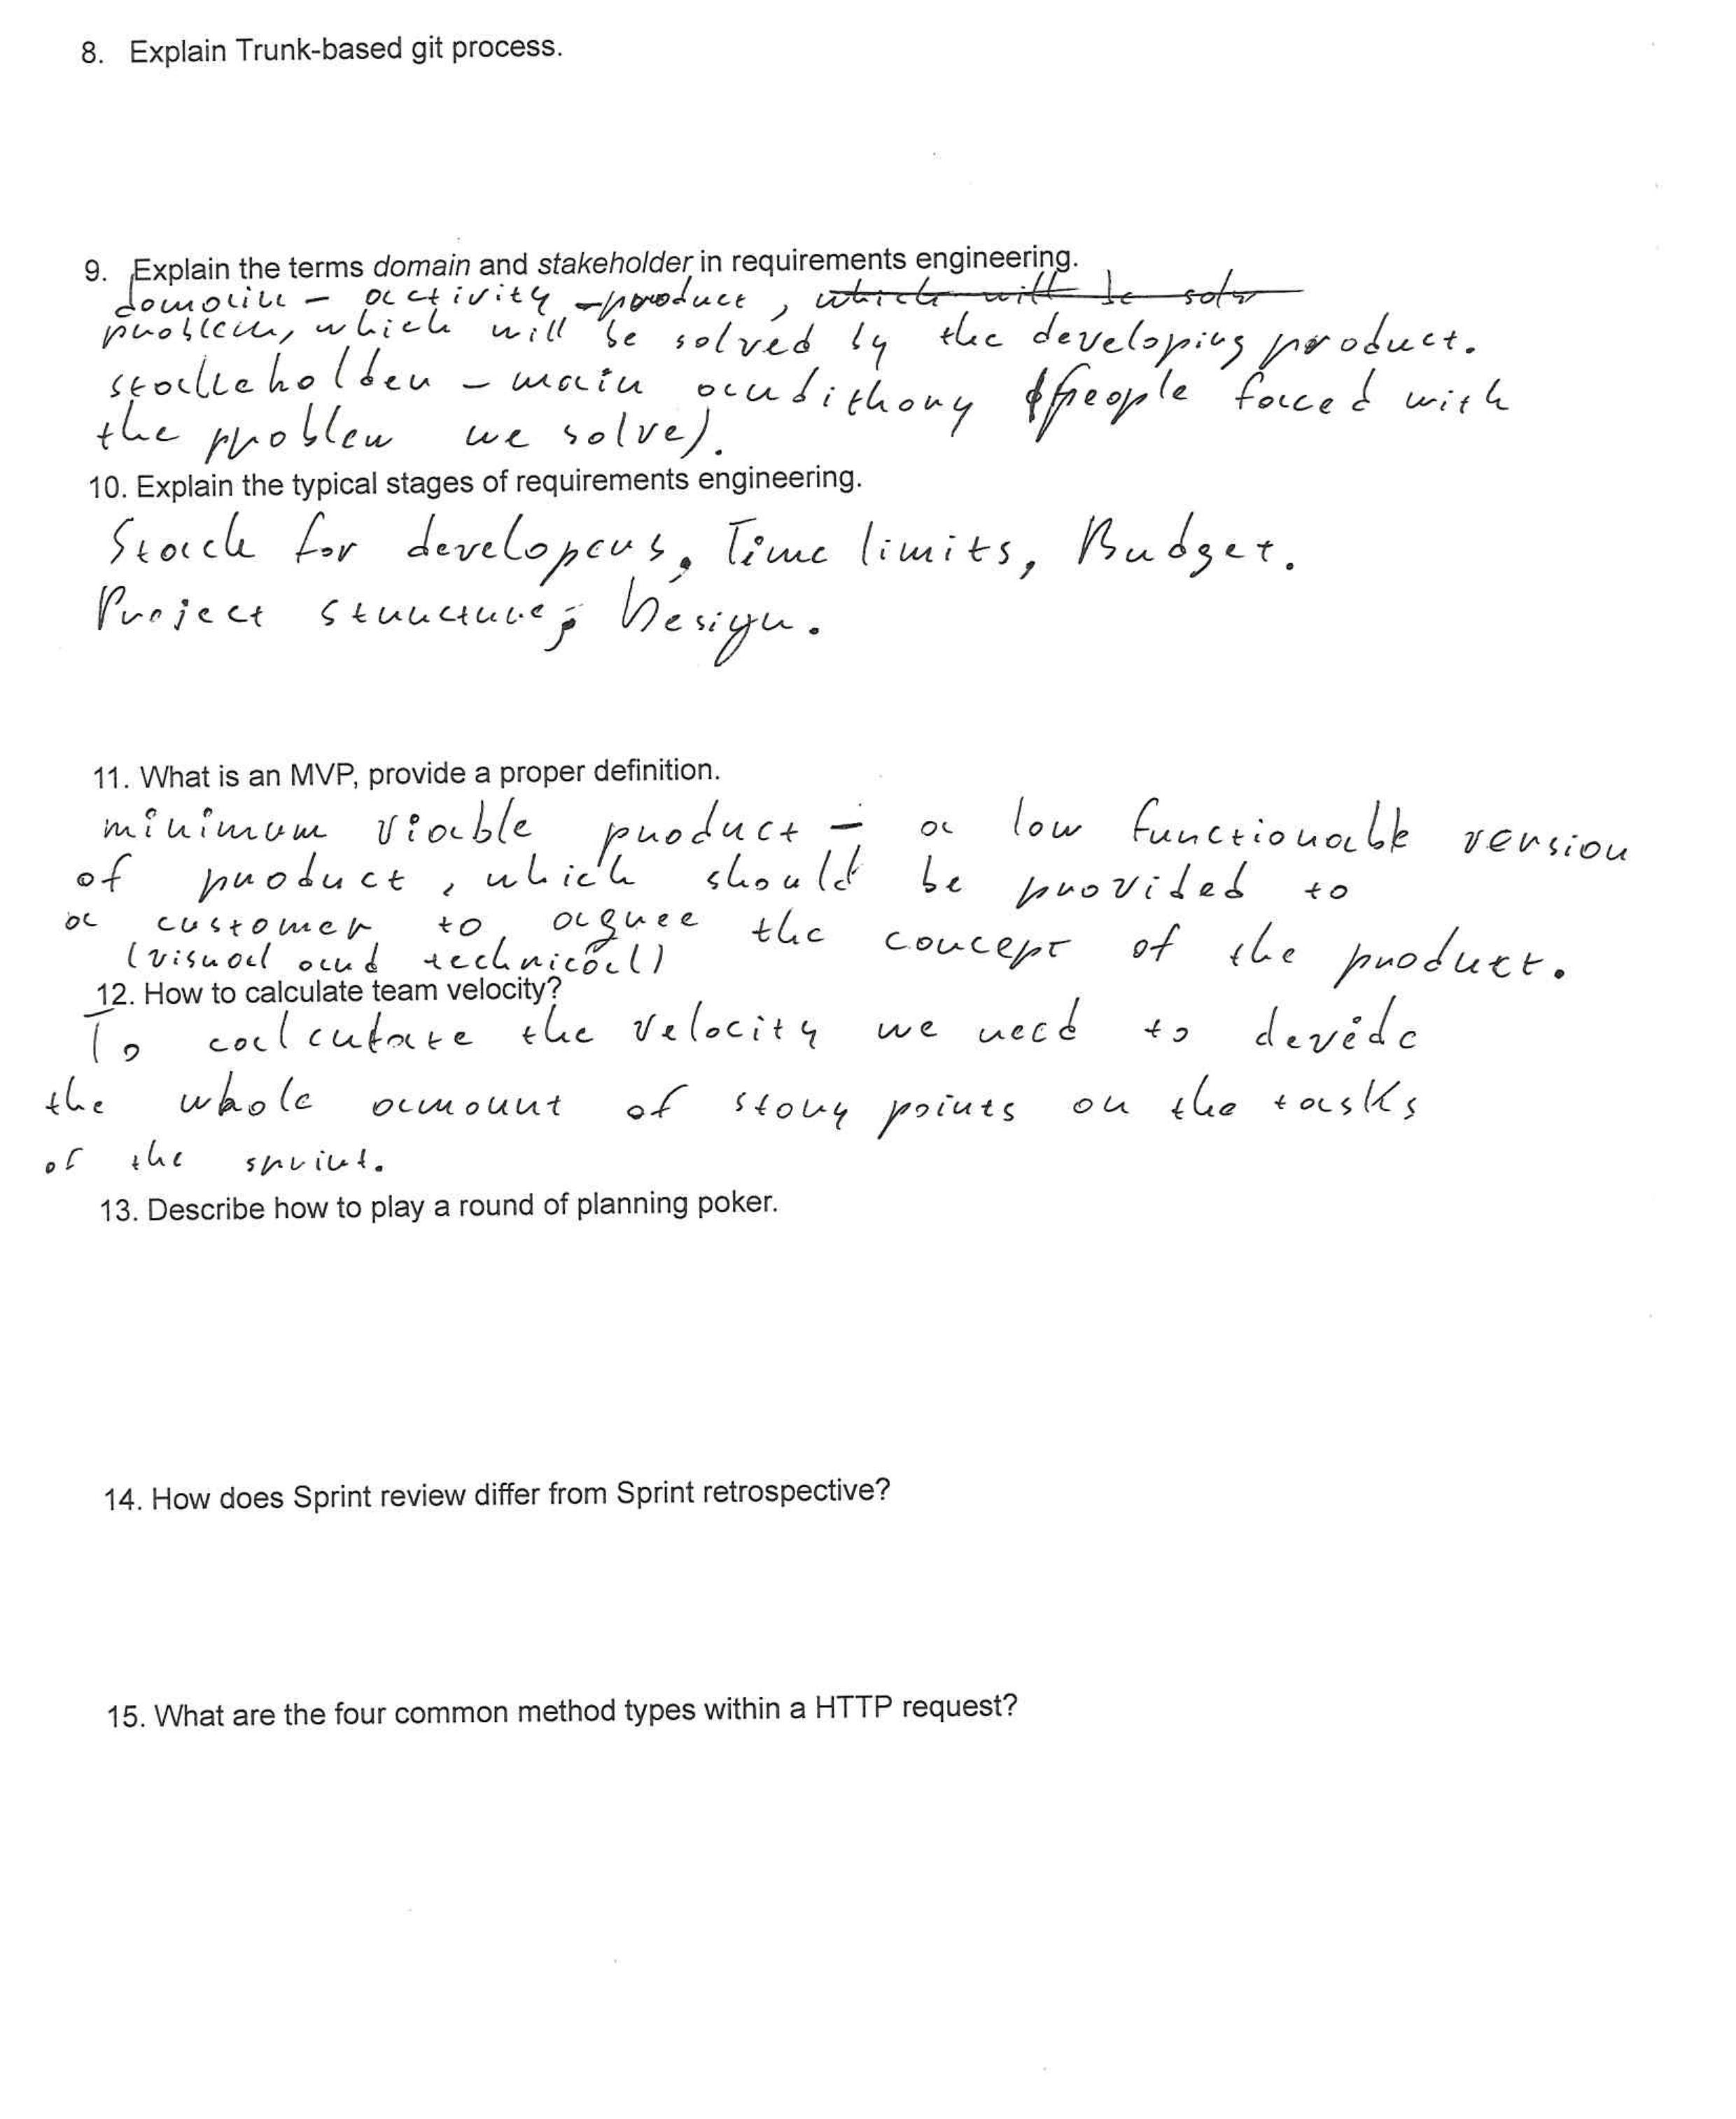 8. Explain Trunk-based git process.
9. Explain the terms domain and stakeholder in requirements engineering.
domain - activity - product, which will be solv
problem, which will be solved by the developing product.
stakeholder - main audithory (people faced with
the problem we solve).
10. Explain the typical stages of requirements engineering.
Stack for developers, Time limits, Budget.
Project structure, Design.
11. What is an MVP, provide a proper definition.
minimum viable product - a low functionable version
of product, which should be provided to
a customer to agree the concept of the product.
(visual and technical)
12. How to calculate team velocity?
To calculate the velocity we need to devide
the whole amount of story points on the tasks
of the sprint.
13. Describe how to play a round of planning poker.
14. How does Sprint review differ from Sprint retrospective?
15. What are the four common method types within a HTTP request?